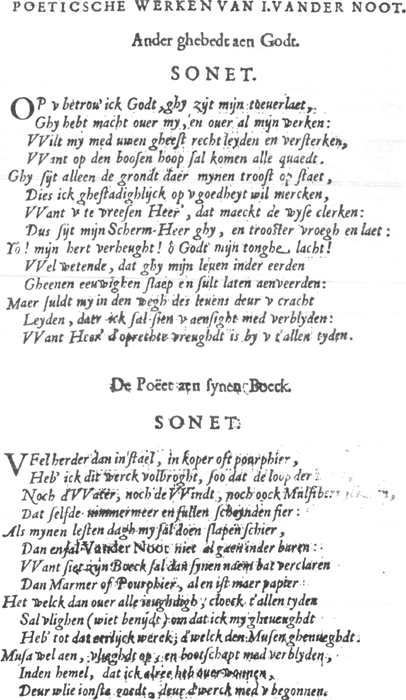 POETICSCHE WERKEN VAN I. VANDER NOOT.
Ander ghebedt aen Godt.
SONET.
OP v betrou' ick Godt, ghy zyt mijn toeuerlaet,
Ghy hebt macht ouer my, en ouer al mijn werken:
VVilt my med uwen gheest recht leyden en versterken,
VVant op den boosen hoop sal komen alle quaedt.
Ghy sijt alleen de grondt daer mynen troost op staet,
Dies ick ghestadighlijck op v goedheyt wil mercken,
VVant v te vreesen Heer', dat maeckt de wyse clerken:
Dus sijt mijn Scherm-Heer ghy, en trooster vroegh en laet:
Yo! mijn hert verheught! ô Godt mijn tonghe lacht!
VVel wetende, dat ghy mijn leuen inder eerden
Gheenen eeuwigken slaep en sult laten aenveerden:
Maer suldt my in den wegh des leuens deur v cracht
Leyden, daer ick sal sien v aensight med verblyden:
VVant Heer' d'oprechte vreughdt is by v t'allen tyden.
De Poëet aen synen Boeck.
SONET.
VFel herder dan in stael, in koper oft pourphier,
Heb' ick dit werck volbroght, soo dat de loop der
Noch d'VVater, noch de VVindt, noch oock Mulsibers
Dat selfde nimmermeer en sullen scheynden fier:
Als mynen lesten dagh my sal doen slapen schier,
Dan en sal Vander Noot niet al gaen inder buren:
VVant siet zijn Boeck sal dan synen naem bat verclaren
Dan Marmer of Pourphier, al en ist maer papier:
Het welck dan ouer alle ieughdigh, cloeck t'allen tyden
Sal vlighen (wiet benydt) om dat ick my gheueughdt
Heb' tot dat eerlyck werck, d'welck den Musen ghenueghdt.
Musa wel aen, vlieghdt op, en bootschapt med verblyden,
Inden hemel, dat ick alree heb ouerwonnen,
Deur v lie ionste goedt, deur d'werck med v begonnen.